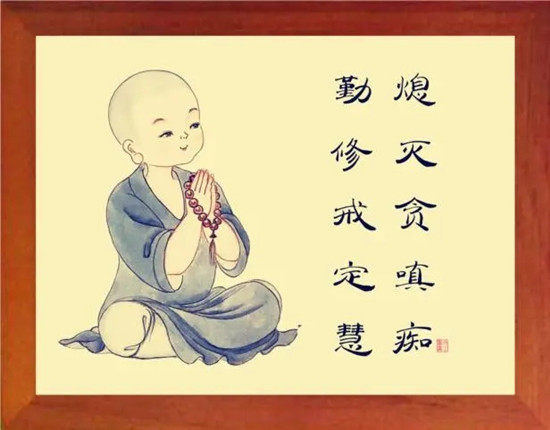 熄灭贪嗔痴
勤修戒定慧